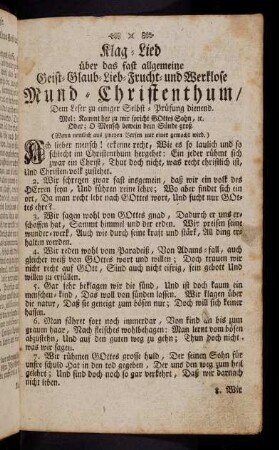 Klag-Lied
über das fast allgemeine
Geist-Glaub-Lieb-Frucht- und Werklose
Mund-Christenthum/
Dem Leser zu einiger Selbst-Prüfung dienend.
Mel: Kommt her zu mir spricht GOttes Sohn, ꝛc.
Oder: O Mensch bewein dein Sünde groß.
(Wann nemlich aus zweyen Versen nur einer gemacht wird.)
Ach lieber mensch! erkenne recht, Wie es so laulich und so
schlecht im Christenthum hergehet: Ein jeder rühmt sich
zwar ein Christ, Thut doch nicht, was recht christlich ist,
Und Christen-volk zustehet.
2. Wir schreyen zwar fast insgemein, daß wir ein volk des
HErren seyn, Und führen reine lehre: Wo aber findet sich ein
ort, Da man recht lebt nach GOttes wort, Und sucht nur GOt-
tes ehre?
3. Wir sagen wohl von GOttes gnad, Dadurch er uns er-
schaffen hat, Sammt himmel und der erden. Wir preisen seine
wunder-werk, Auch wie durch seine kraft und stärk, All ding er-
halten werden.
4. Wir reden wohl vom Paradeiß, Von Adams-fall, auch
gleicher weiß von GOttes wort und willen; Doch trauen wir
nicht recht auf GOtt, Sind auch nicht eifrig, sein gebott Und
willen zu erfüllen.
5. Gar sehr beklagen wir die sünd, Und ist doch kaum ein
menschen-kind, Das woll von sünden lassen. Wir klagen über
die natur, Daß sie geneigt zum bösen nur; Doch will sich keiner
hassen.
6. Man fähret fort noch immerdar, Von kind an bis zum
grauen haar, Nach fleisches wohlbehagen: Man lernt vom bösen
abzustehn, Und auf den guten weg zu gehn; Thun doch nicht,
was wir sagen.
7. Wir rühmen GOttes grosse huld, Der seinen Sohn für
unsre schuld Hat in den tod gegeben, Der uns den weg zum heil
gelehrt; Und sind doch noch so gar verkehrt, Daß wir darnach
nicht leben.
8. Wir